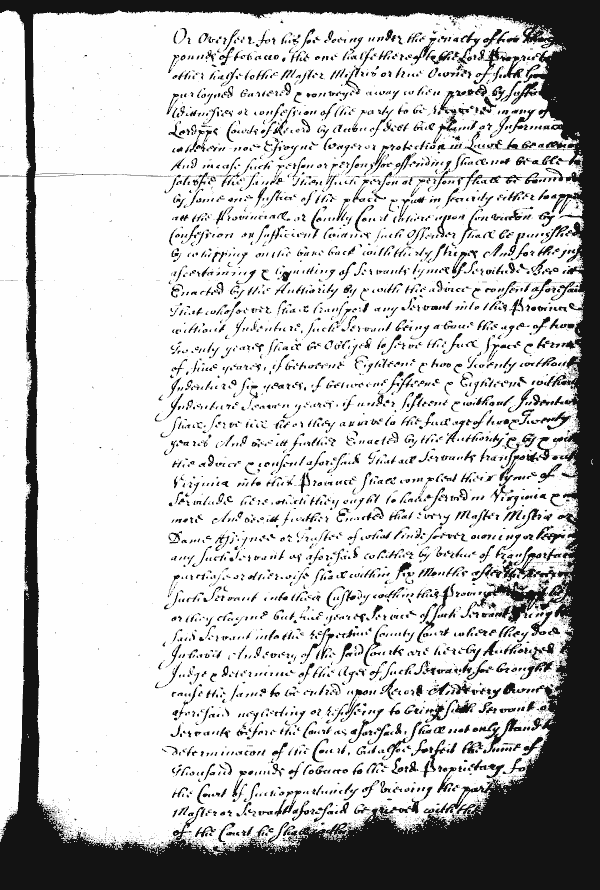 Or Overseer for his soe doeing under the penalty of two thous
pounds of tobacco, the one halfe thereof to the Lord Propriet
other halfe to the Master Mistris or true Owner of such Goo
purloyned bartered & conveyed away when proved by suffic
Wittnesses or confession of the party to be recovered in any of
Lordpps Courts of Record by accon of debt bill plaint or Informac
wherein noe Essoyne Wager or protection in Lawe to be allow
And in case such person or persons soe offending shall not be able to
satisfie the same Then such person or persons shall be bound o
by some one Justice of the peace & putt in security either to app
att the Provinciall or County Court where upon Conviccon by
Confession or sufficient wittnes such Offender shall be punished
by whipping on the bare back with thirty stripes And for the
ascertaining & Limitting of Servants tymes of Servitude Bee itt
Enacted by the Authority by & with the advice & consent aforesaid
That whosoever shall transport any Servant into this Province
without Indenture, such Servant being above the age of two &
Twenty yeares shall be Obliged to serve the full Space & terme
of five yeares, if betweene Eighteene & two & Twenty without
Indenture six yeares, if betweene fifteene & Eighteene without
Indenture Seaven yeares, if under fifteene & without Indenture
shall serve till he or they arrive to the full age of two & Twenty
yeares And bee itt further Enacted by the Authority & by & with
the advice & consent aforesaid That all Servants transported out
Virginia into this Province shall compleat their tyme of
Servitude here which they ought to have served in Virginia & noe
more And bee itt further Enacted that every Master Mistris or
Dame Assignee or Trustee of what kinde soever owning or keepi
any such Servant as aforesaid whether by vertue of transportac
purchase or otherwise shall within six Months after the receiv
such Servant into their Custody within this Province
or they clayme but five yeares service of such Servant bring
said Servant into the respective County Court where they doe
Inhabit And every of the said Courts are hereby Authorized to
Judge & determine of the Ages of such Servants soe brought &
cause the same to be entred upon Record And every Owner
aforesaid neglecting or refuseing to bring such Servant or
Servants before the Court as aforesaid, shall not only stand to
determinacon of the Court, but alsoe forfeit the Summe of
thousand pounds of tobacco to the Lord Proprietary, fo
the Court of such oppurtunity of viewing the part
Master or Servant aforesaid be grieved with the
of the Court he shall